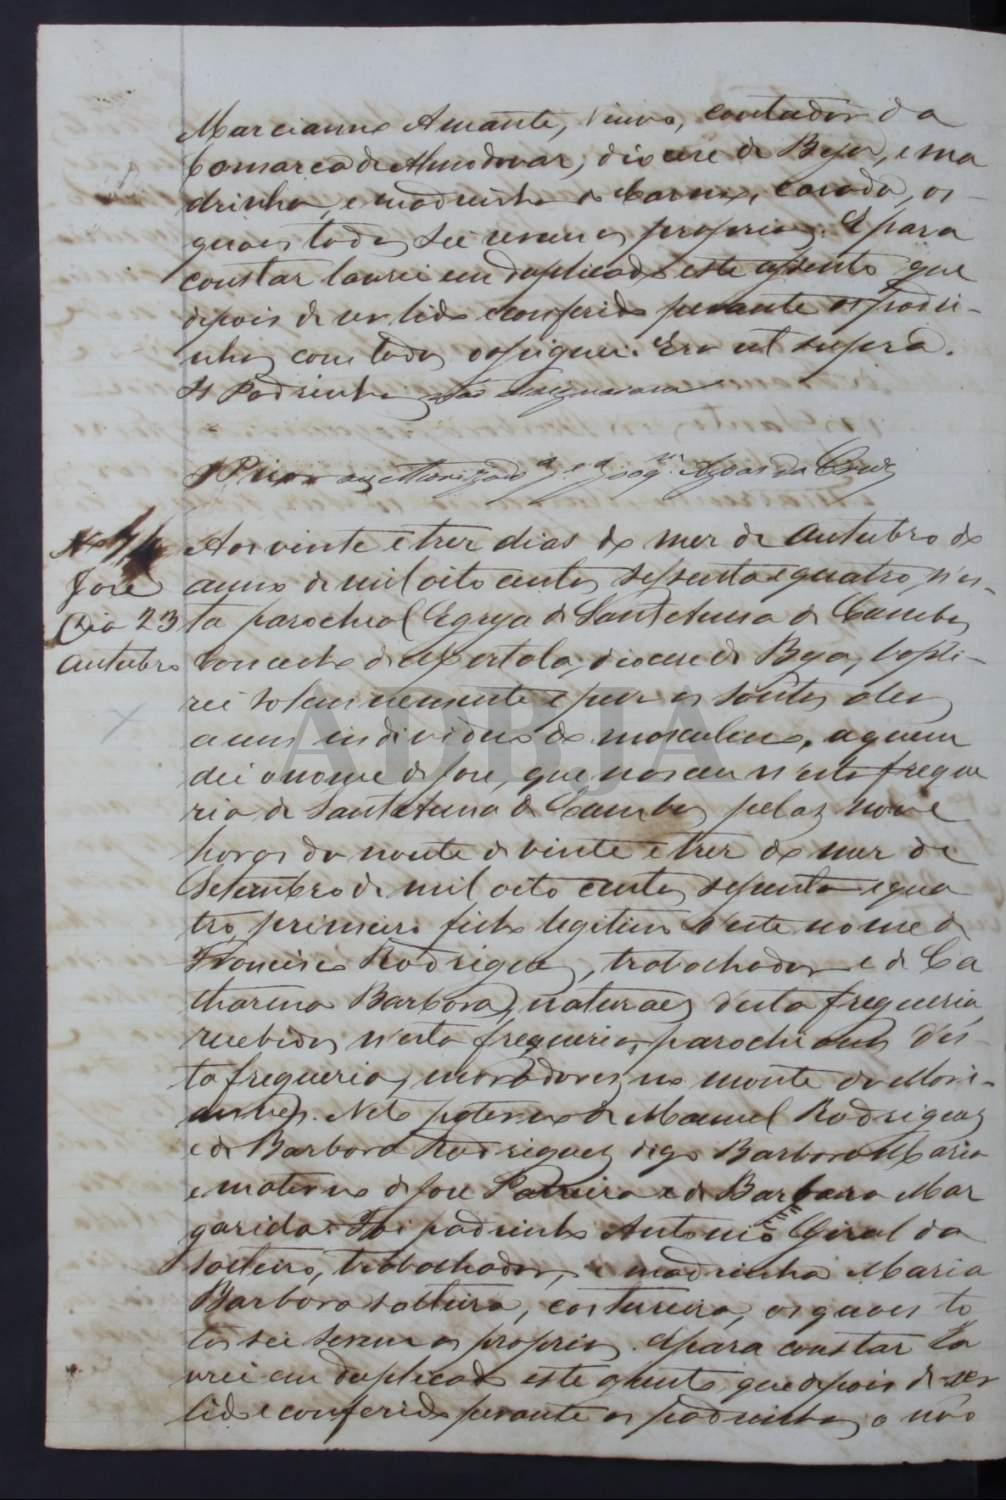 Marcianno Amante, viuvo, contador da
Comarca de Almodovar, diocese de Beja, e ma
drinha, e madrinha do Carmo, casada, os
quaes todos sei serem os proprios. E para
constar lavrei em duplicado este assento que
depois de ser lido e conferido perante os padri-
nhos com todos o assignei. Era ut supra.
Os Padrinhos não assignaram
O Prior auctorizado Joaq.m da Cruz
No
José
Dia 23
Outubro
Aos vinte e tres dias do mez de Outubro do
anno de mil oito centos sessenta e quatro, n'es-
ta parochial Egreja de Sant'Anna de Cambas
concelho de Mertola, diocese de Beja, bapti-
zei solemnemente e puz os santos oleos
a um individuo do masculino, a quem
dei o nome de José, que nasceu n'esta fregue
zia de Sant'Anna de Cambas pelas nove
horas da noute de vinte e tres do mez de
Setembro de mil oito centos sessenta e qua
tro, primeiro filho legitimo d'este nome de
Francisco Rodrigues, trabalhador e de Ca
tharina Barbora, naturaes desta freguezia,
recebidos n'esta freguezia, parochianos d'es-
ta freguezia, moradores no monte
Neto paterno de Manuel Rodrigues
e de Barbora Rodrigues digo Barbora Maria
e materno de José Parreira e de Barbara Mar
garida. Foi padrinho Antonio
solteiro, trabalhador, e madrinha Maria
Barbora solteira, costureira, os quaes to
dos sei serem os proprios. E para constar la
vrei em duplicado este assento, que depois de ser
lido e conferido perante os padrinhos, o não
ADBJA